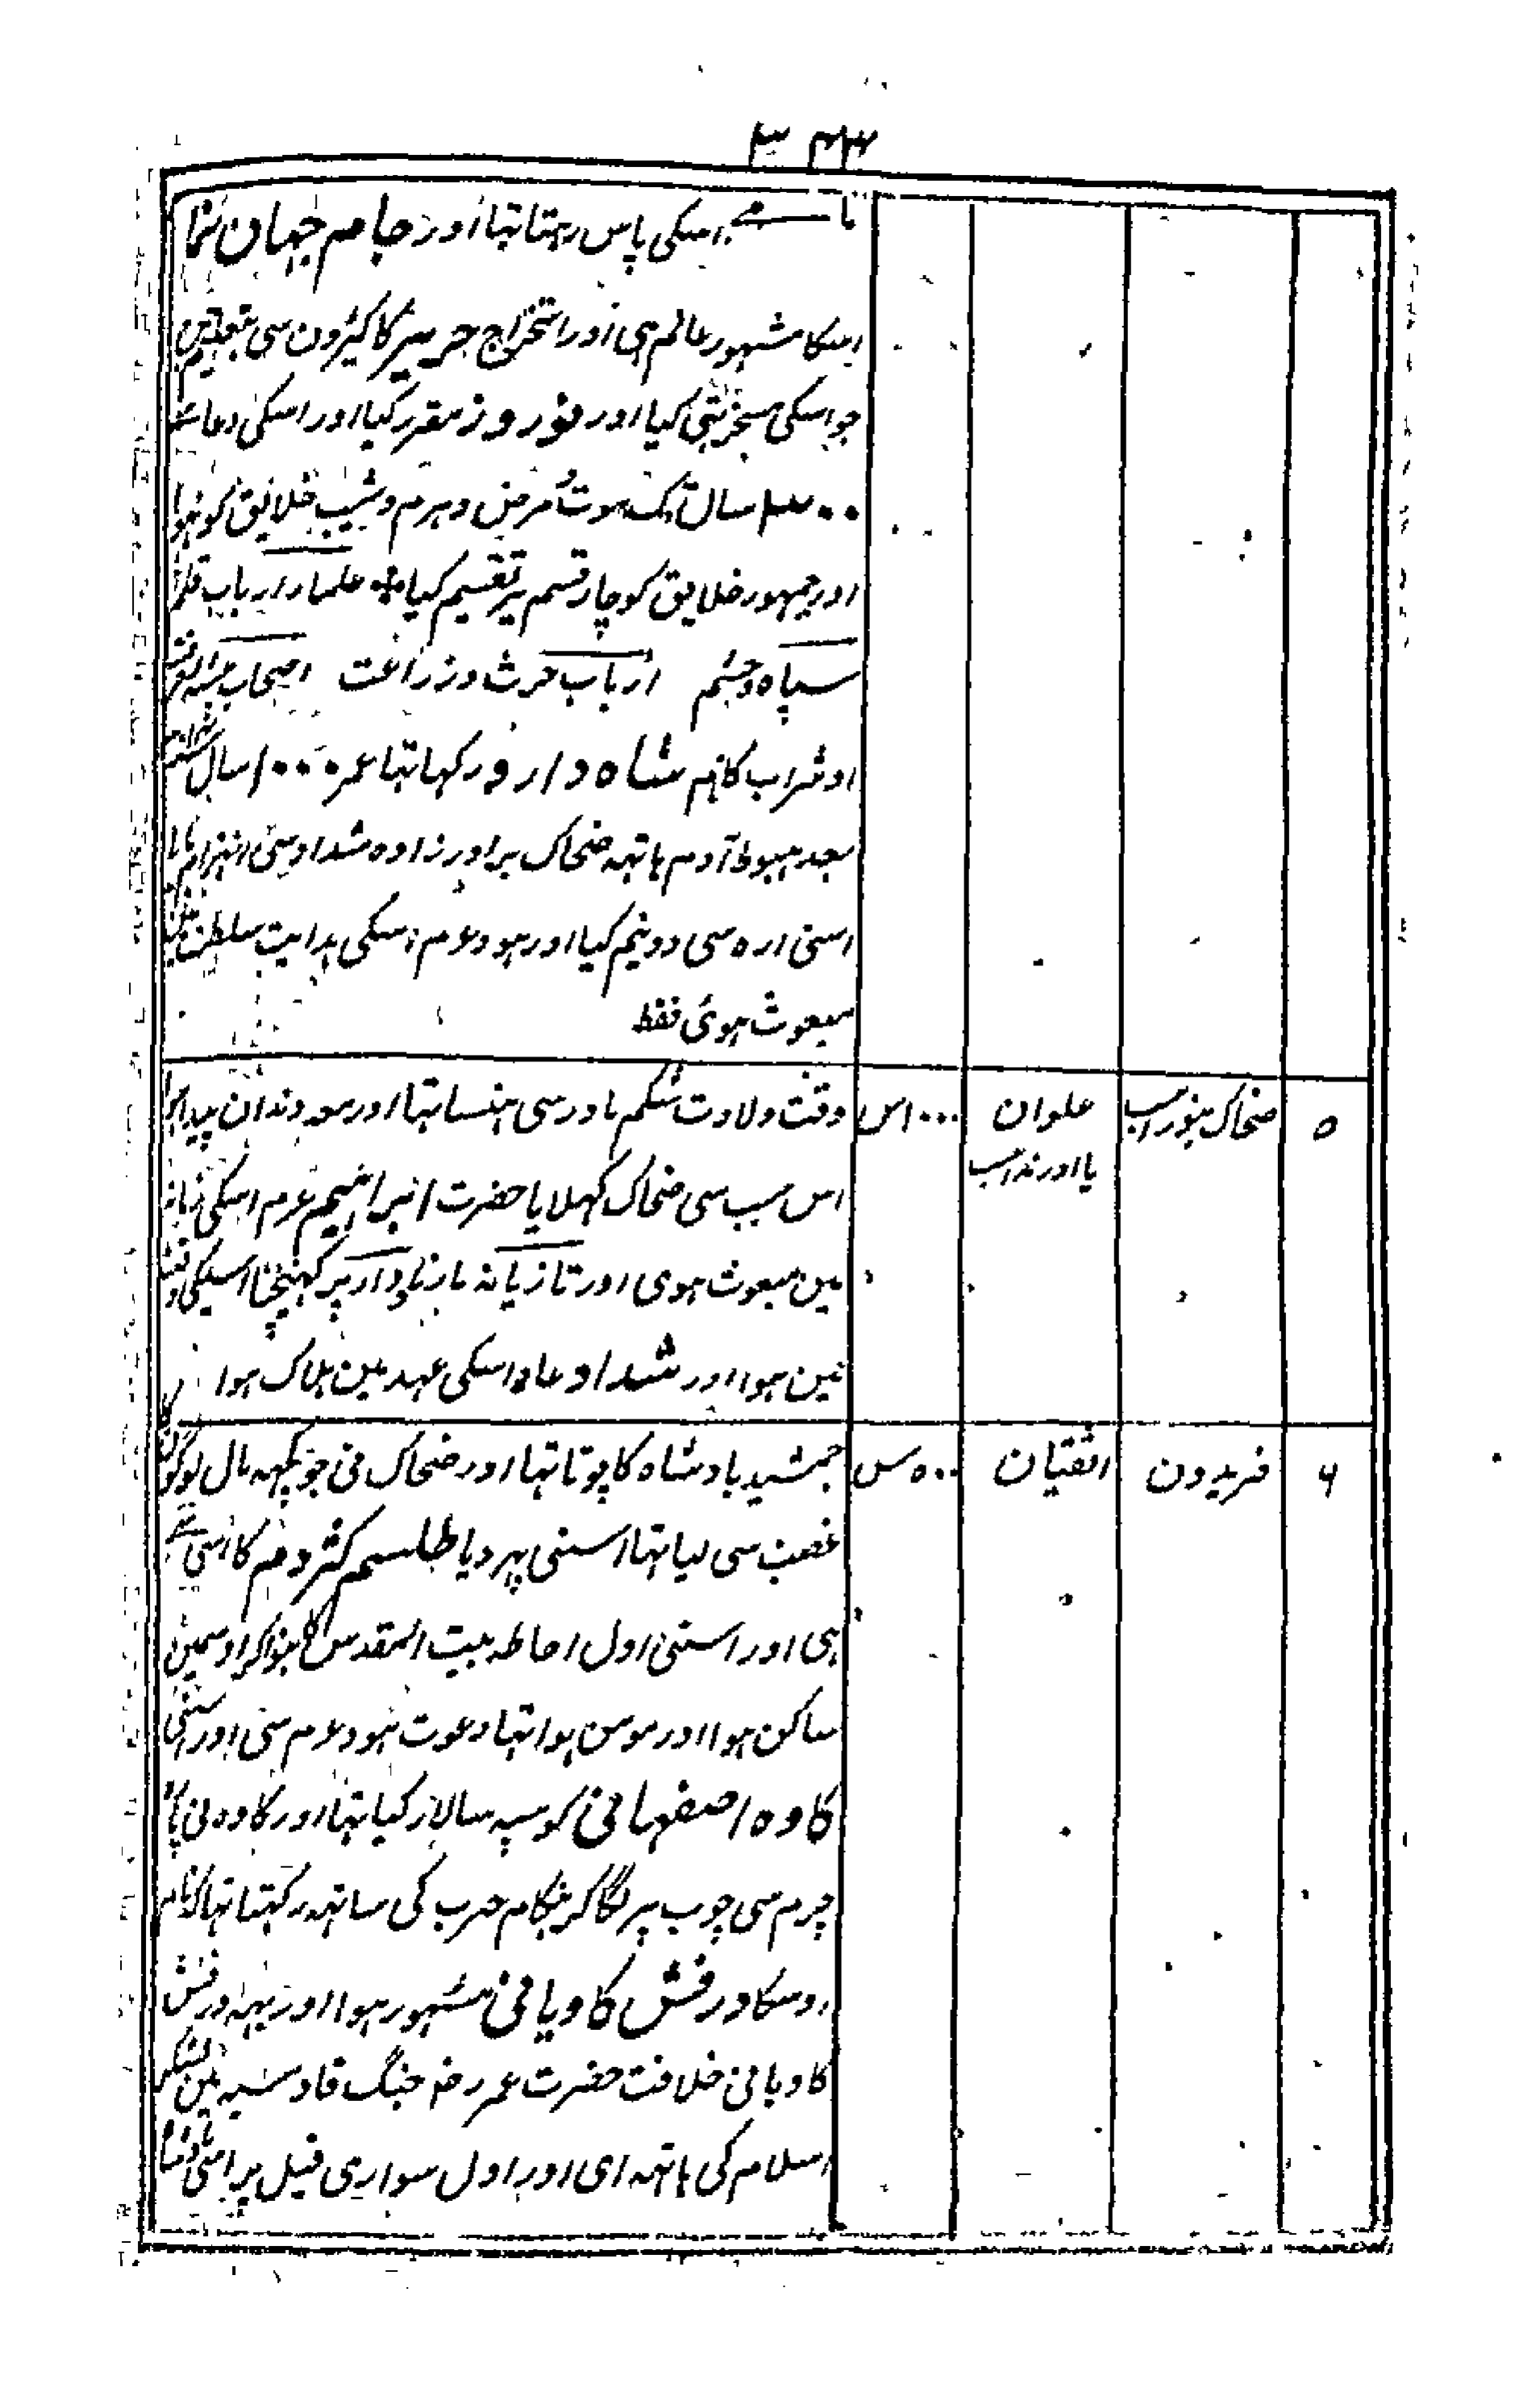 ۳۴۳
اسکی پاس رہتا تہا اور جام جہان نما
اسکا مشہور عالم ہی اور استخراج حریر کا کیڑون سی
جو اسکی کیا اور نوروز مقرر کیا اور اسکی دعا سے
۳۰۰ سال تک موت مرض و ہرم و شیب خلایق کو نہوا
اور جمہور خلایق کو چار قسم پر تقسیم کیا علما و ارباب قلم
سپاہ و حشم ارباب حرث و زراعت اصحاب
اور شراب کا نام شاہ دارو رکہا تہا عمر ۱۰۰۰ سال
بعد ہبوط آدم ہاتہہ ضحاک برادر زادہ شداد سی
اسنی ارہ سی دونیم کیا اور ہود عم اسکی ہدایت سلطنت
مبعوث ہوئی فقط
۵ ضحاک علوان ۱۰۰۰س وقت ولادت شکم مادر سی ہنستا تہا اور معہ دندان پیدا ہوا
یا اس سبب سی ضحاک کہلایا حضرت ابراہیم عم اسکی زمانہ
مین مبعوث ہوی اور تازیانہ مارنا و دار پر کہنچنا اسیکی وقت
مین ہوا اور شداد عاد اسکی عہد مین ہلاک ہوا
۶ فریدون اثقیان ۵۰۰س جمشید بادشاہ کا پوتا تہا اور ضحاک نی جو کچہہ مال لوگون کا
غصب سی لیا تہا اسنی پہر دیا طلسم کژدم کا اسی سے
ہی اور اسنی اول احاطہ بیت المقدس کا بنوا کر اوسمین
ساکن ہوا اور مومن ہوا تہا دعوت ہود عم سی اور اسنی
کاوہ اصفہانی کو سپہ سالار کیا تہا اور کاوہ نی
چرم سی چوب پر لگا کر ہنگام حرب کی ساتہہ رکہتا تہا نام
اوسکا درفش کاویانی مشہور ہوا اور یہہ درفش
کاویانی خلافت حضرت عمر رض جنگ قادسیہ مین لشکر
اسلام کی ہاتہہ ای اور اول سواری فیل پر اسی